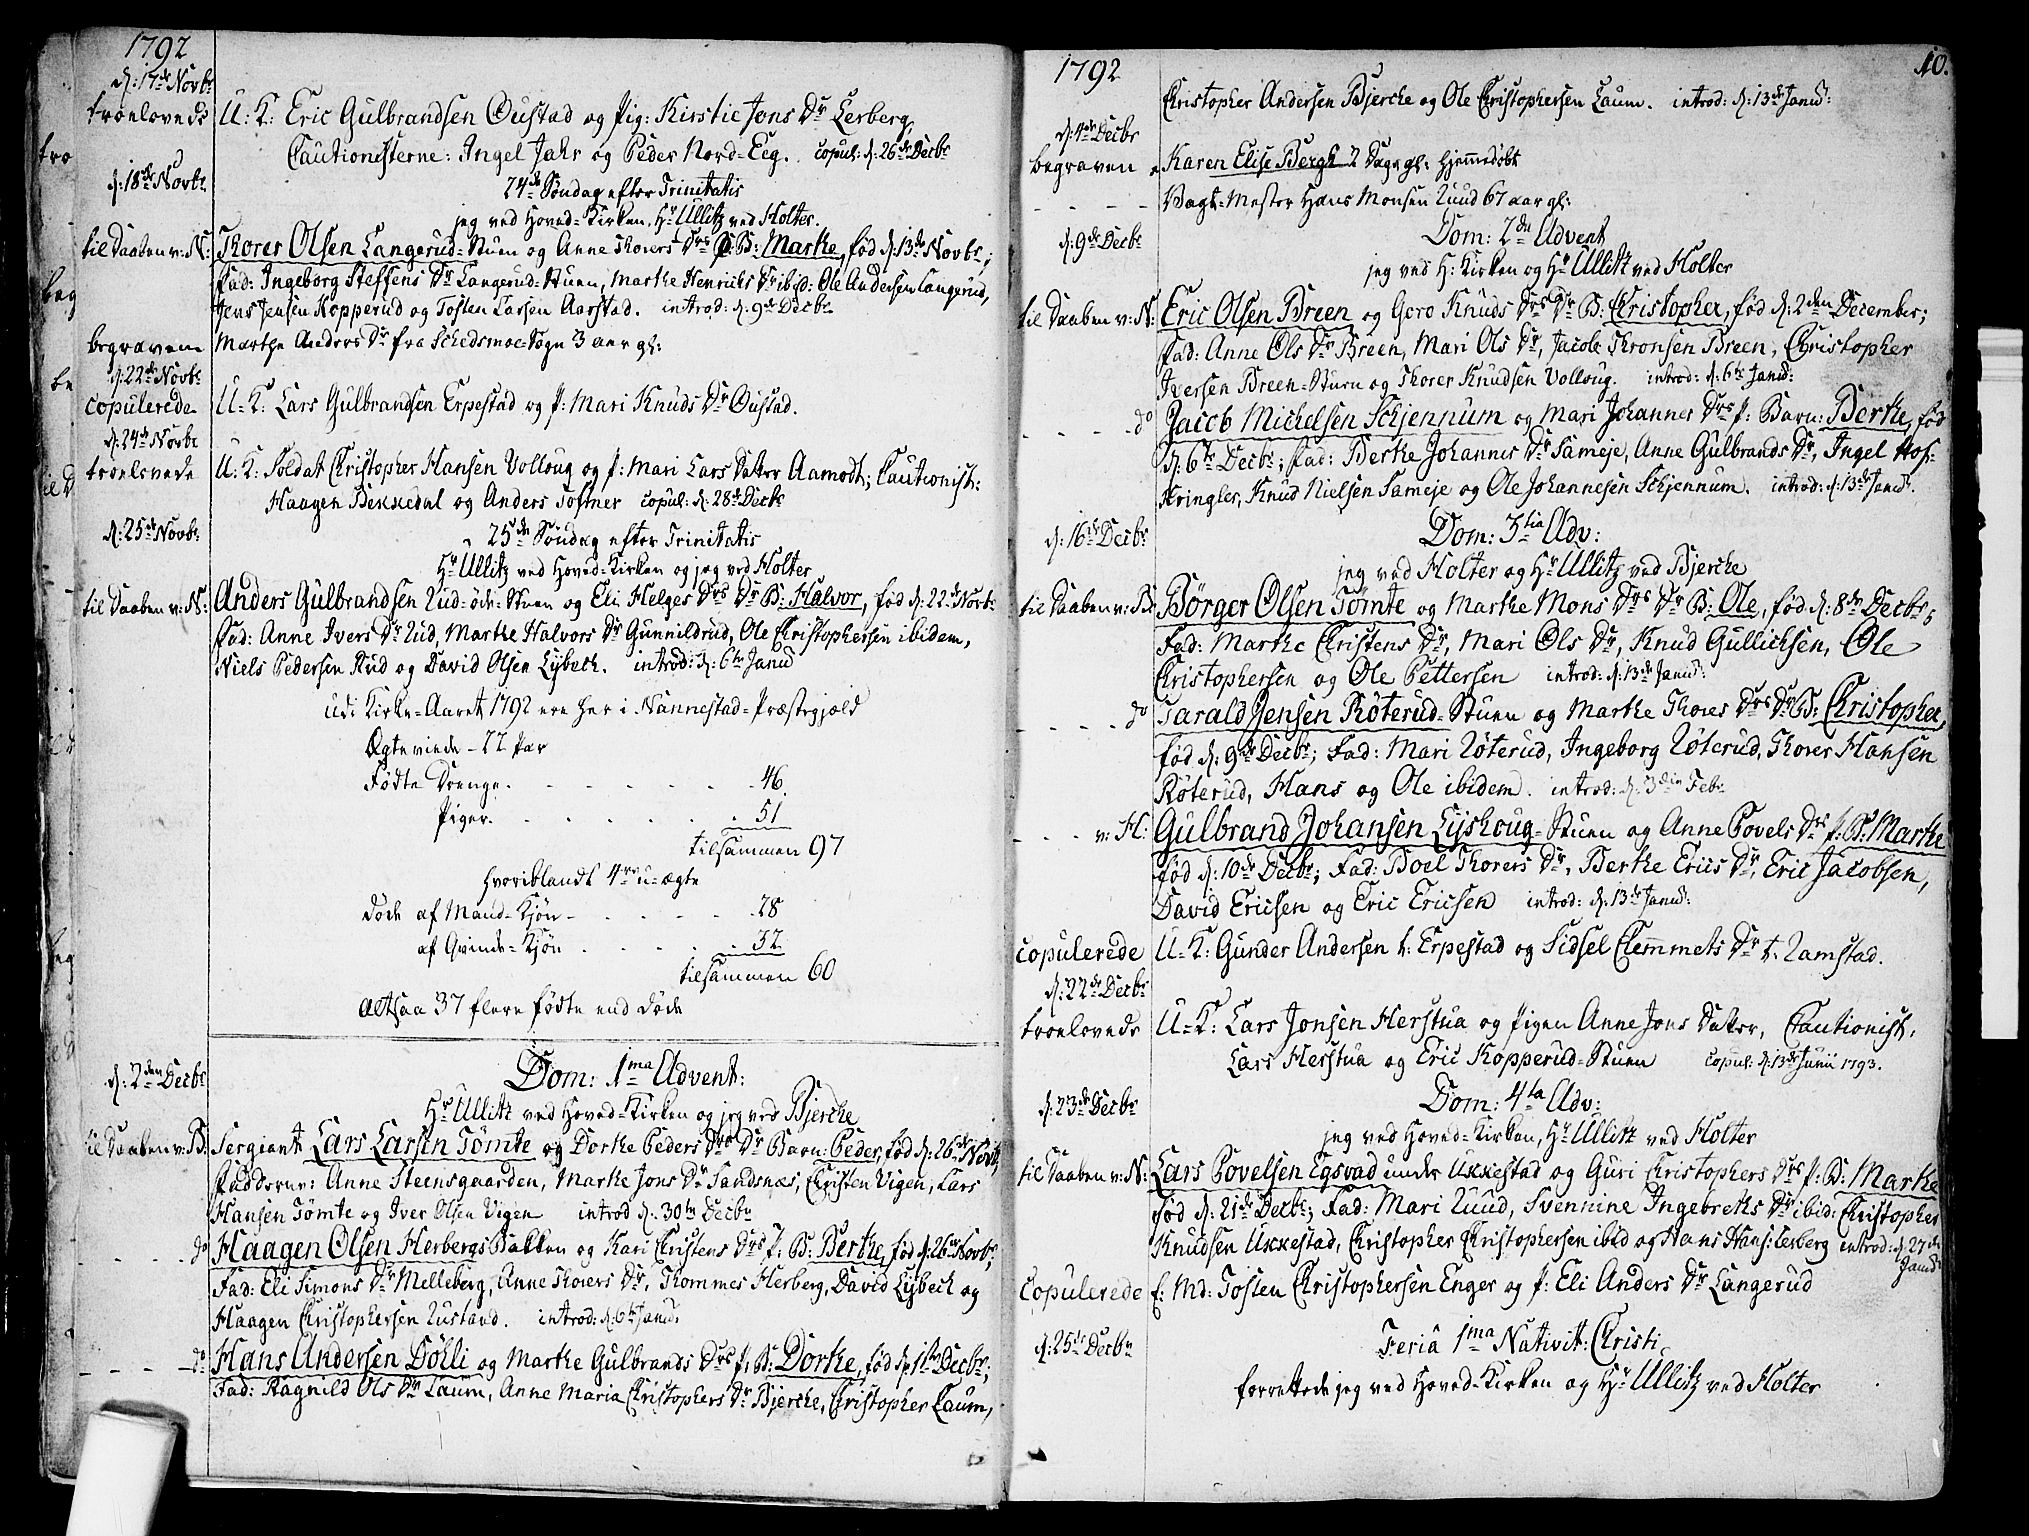 1792
d: 17de Novbr
troelovede U: K: Eric Gulbrandsen Oustad og Pig: Kirstie Jons Dr Lerberg,
Cautionisterne: Ingel Jahr og Peder Nord-Eeg. copul: d: 26de Decbr
d: 18de Novbr
24de Söndag efter Trinitatis
jeg ved Hoved-Kirken, Hr Ullitz ved Holter.
til Daaben v: N: Thorer Olsen Langerud-Stuen og Anne Thorers Drs P: B: Marthe, fød d: 13de Novbr;
Fad: Ingeborg Steffens Dr Langerud-Stuen, Marthe Henrichs Dr ibid: Ole Andersen Langerud,
Jens Jensen Kopperud og Tosten Larsen Aarstad. introd: d: 9de Decbr
begravene Marthe Anders Dr fra Schedsmoe-Sogn 3 aar gl:
d: 22de Novbr
copulerede U-K: Lars Gulbrandsen Erpestad og P: Mari Knuds Dr Oustad.
d: 24de Novbr
troelovede U: K: Soldat Christopher Hansen Volloug og P: Mari Lars Datter Aamodt; Cautionist:
Haagen Bekkedal og Anders Toftner copul: d: 28de Decbr
d: 25de Novbr
25de Söndag efter Trinitatis
Hr Ullitz ved Hoved-Kirken og jeg ved Holter
til Daaben v: N: Anders Gulbrandsen Rud-öde-Stuen og Eli Helges Drs Dr B: Halvor, fød d: 22de Novbr
Fad: Anne Ivers Dr Rud, Marthe Halvors Dr Gunnildrud, Ole Christophersen ibidem,
Niels Pedersen Rud og David Olsen Lybeck. introd: d: 6te Janu:
udi Kirke-Aaret 1792 ere her i Nannestad-Præstegjeld
Ægteviede - 22 Par
Fødte Drenge. . . . . . . 46.
Piger. . . . . . . 51
tilsammen 97
hvoriblandt 4re u-ægte
Døde af Mand-Kjön - . . . . . 28
af Qvinde-Kjön . . . . . 32
tilsammen 60
altsaa 37 flere fødte end døde
d: 2den Decbr
Dom: 1ma Advent:
Hr Ullitz ved Hoved-Kirken og jeg ved Bjerche
til Daaben v: B: Sergeant Lars Larsen Tömte og Dorthe Peders Drs Dr Barn: Peder, fød d: 26de Novbr
Fadderne: Anne Steensgaarden, Marthe Jons Dr Sandsnæs, Christen Vigen, Lars
Hansen Tömte og Iver Olsen Vigen introd d: 30te Decbr
- - - do Haagen Olsen HerbergsBakken og Kari Christens Drs P: B: Berthe, fød d: 26de Novbr;
Fad: Eli Simons Dr Melleberg, Anne Thorers Dr, Thommes Herberg, David Lybeck og
Haagen Christophersen Rustand. introd: d: 6te Janu:
- - - do Hans Andersen Döhli og Marthe Gulbrands Drs P: B: Dorthe, fød d: 1ste Decbr;
Fad: Ragnild Ols Dr Laum, Anne Maria Christophers Dr Bjerche, Christopher Laum,
1792
10.
Christopher Andersen Bjerche og Ole Christophersen Laum. introd: d: 13de Janu:
d: 4de Decbr
begraven Karen Elise Bergh 2 Dage gl: hjemmedöbt
- - - - Vagt-Mester Hans Monsen Ruud 67 aar gl:
d: 9de Decbr
Dom: 2da Advent
jeg ved H: Kirken og Hr Ullitz ved Holter
til Daaben v: N: Eric Olsen Breen og Goro Knuds Drs Dr B: Christopher, fød d: 2den December;
Fad: Anne Ols Dr Breen, Mari Ols Dr, Jacob Thronsen Breen, Christopher
Iversen Breen-Stuen og Thorer Knudsen Volloug. introd: d: 6te Janu:
- - - - do Jacob Michelsen Schjennum og Mari Johannes Drs P: Barn: Berthe, fød
d: 6te Decbr; Fad: Berthe Johannes Dr Sameje, Anne Gulbrands Dr, Ingel Hof-
Kringler, Knud Nielsen Sameje og Ole Johannesen Schjennum. introd: d: 13de Janu:
d: 16de Decbr
Dom: 3tia Adv:
jeg ved Holter og Hr Ullitz ved Bjerche
til Daaben v: B: Börger Olsen Tömte og Marthe Mons Drs Dr B: Ole, fød d: 8de Decbr;
Fad: Marthe Christens Dr, Mari Ols Dr, Knud Gullichsen, Ole
Christophersen og Ole Pettersen introd: d: 13de Janu:
- - - - do Tarald Jensen Röterud-Stuen og Marthe Thores Drs Dr B: Christopher,
fød d: 9de Decbr; Fad: Mari Röterud, Ingeborg Röterud, Thorer Hansen
Röterud, Hans og Ole ibidem. introd: d: 3die Febr
- - - v: H: Gulbrand Johansen Lyshoug-Stuen og Anne Povels Drs P: B: Marthe
fød d: 10de Decbr; Fad: Boel Thorers Dr, Berthe Erics Dr, Eric Jacobsen,
David Ericsen og Eric Ericsen introd: d: 13de Janu:
copulerede U-K: Gunder Andersen t: Erpestad og Sidsel Clemmets Dr t: Ramstad.
d: 22de Decbr
troelovede U-K: Lars Jonsen Herstua og Pigen Anne Jons Datter, Cautionist:
Lars Herstua og Eric Kopperud-Stuen copul: d: 13de Junii 1793.
d: 23de Decbr
Dom: 4ta Adv:
jeg ved Hoved-Kirken, Hr Ullitz ved Holter
til Daaben v: N: Lars Povelsen Egsvad under Ukkestad og Guri Christophers Drs P: B: Marthe
fød d: 21de Decbr; Fad: Mari Ruud, Svennine Ingebreths Dr ibid: Christopher
Knudsen Ukkestad, Christopher Christophersen ibid og Hans Hans: Lerberg introd: d: 27de
Janu:
Copulerede E: Md: Tosten Christophersen Enger og P: Eli Anders Dr Langerud
d: 25de Decbr
Feriâ 1ma Nativit: Christi,
forrettede jeg ved Hoved-Kirken og Hr Ullitz ved Holter